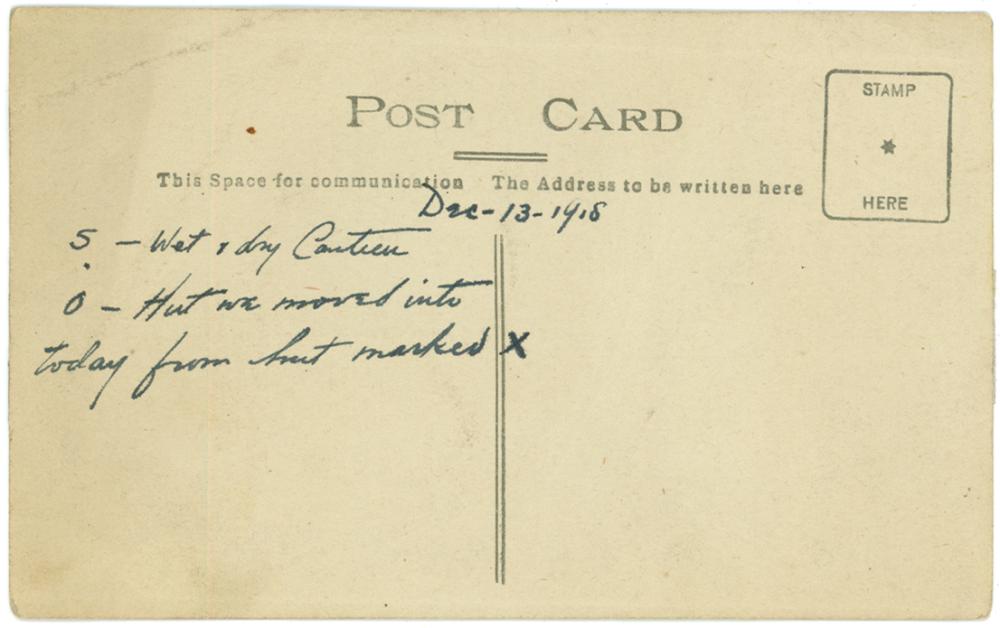 POST CARD
STAMP
HERE
This Space for communication The Address to be written here
Dec-13-1918
5 - Wet & dry Canteen
0 - Hut we moved into
today from hut marked X